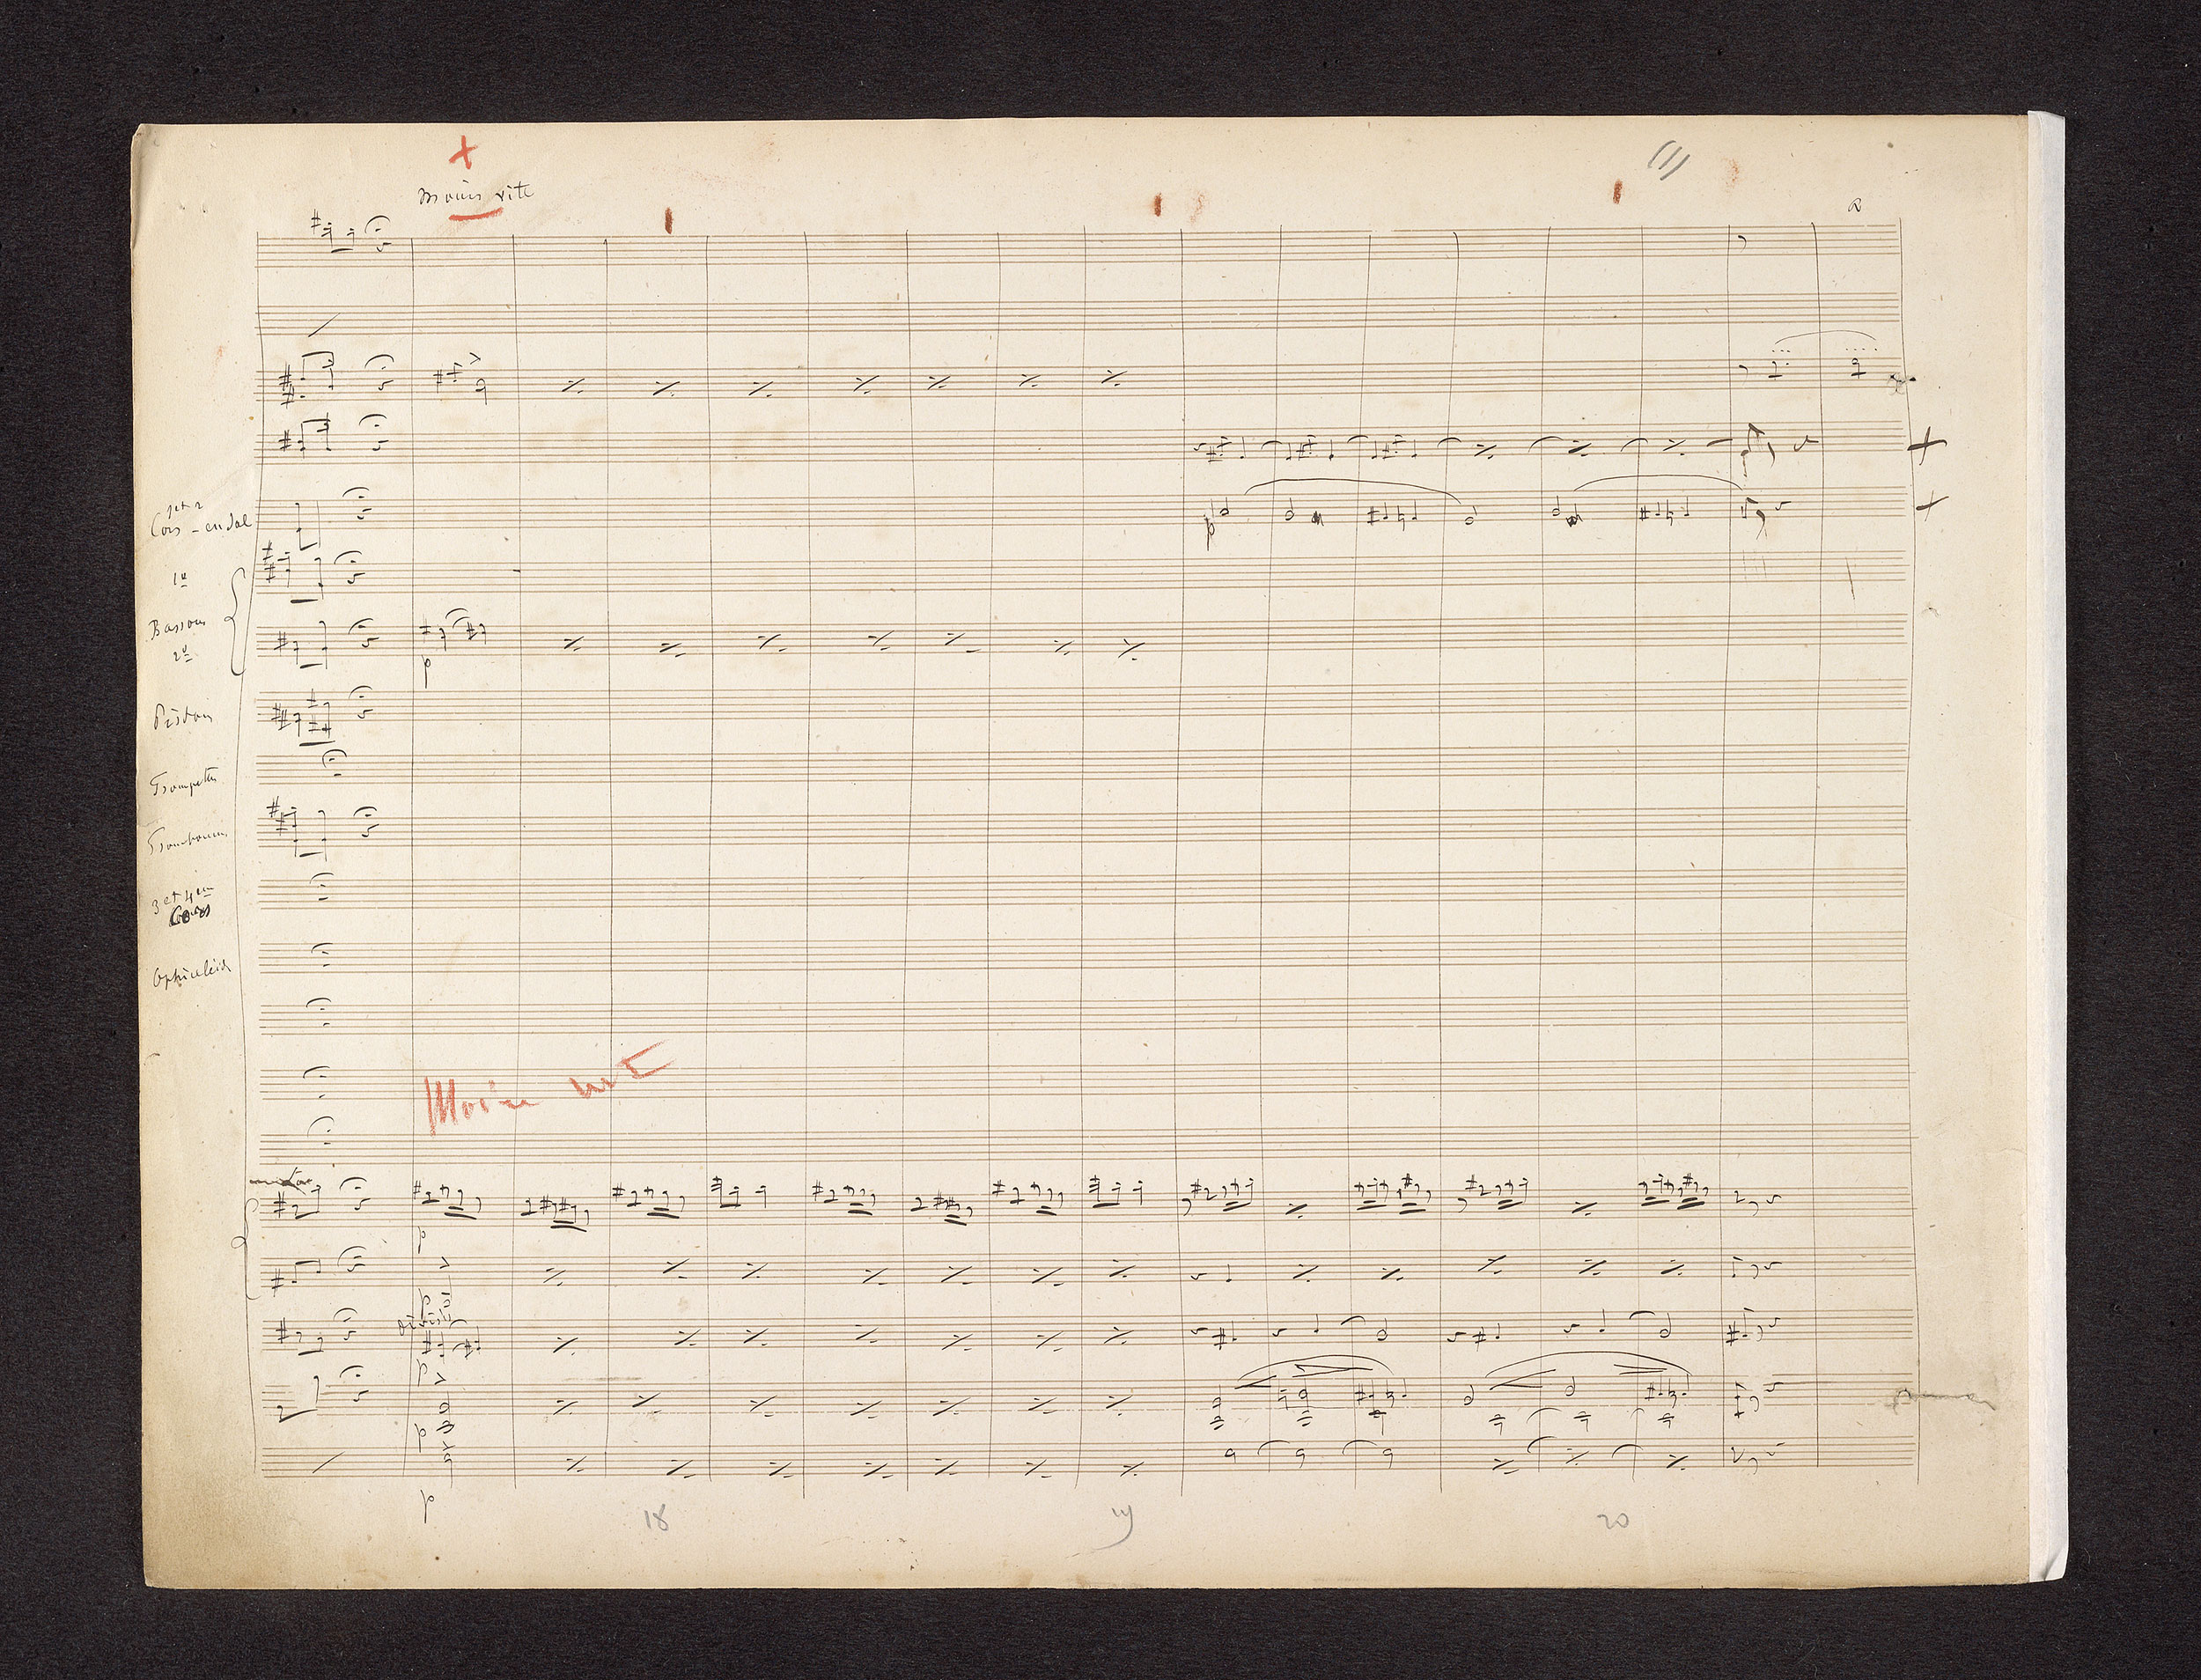 Moins vite
1 et 2
Cors - en sol
1er
Bassons
2d
Piston
Trompettes
Trombonnes
3 et 4em
Cors
Ophicleide
Moins vite
p
p
p
p
p
p
p
divisi
18
19
20